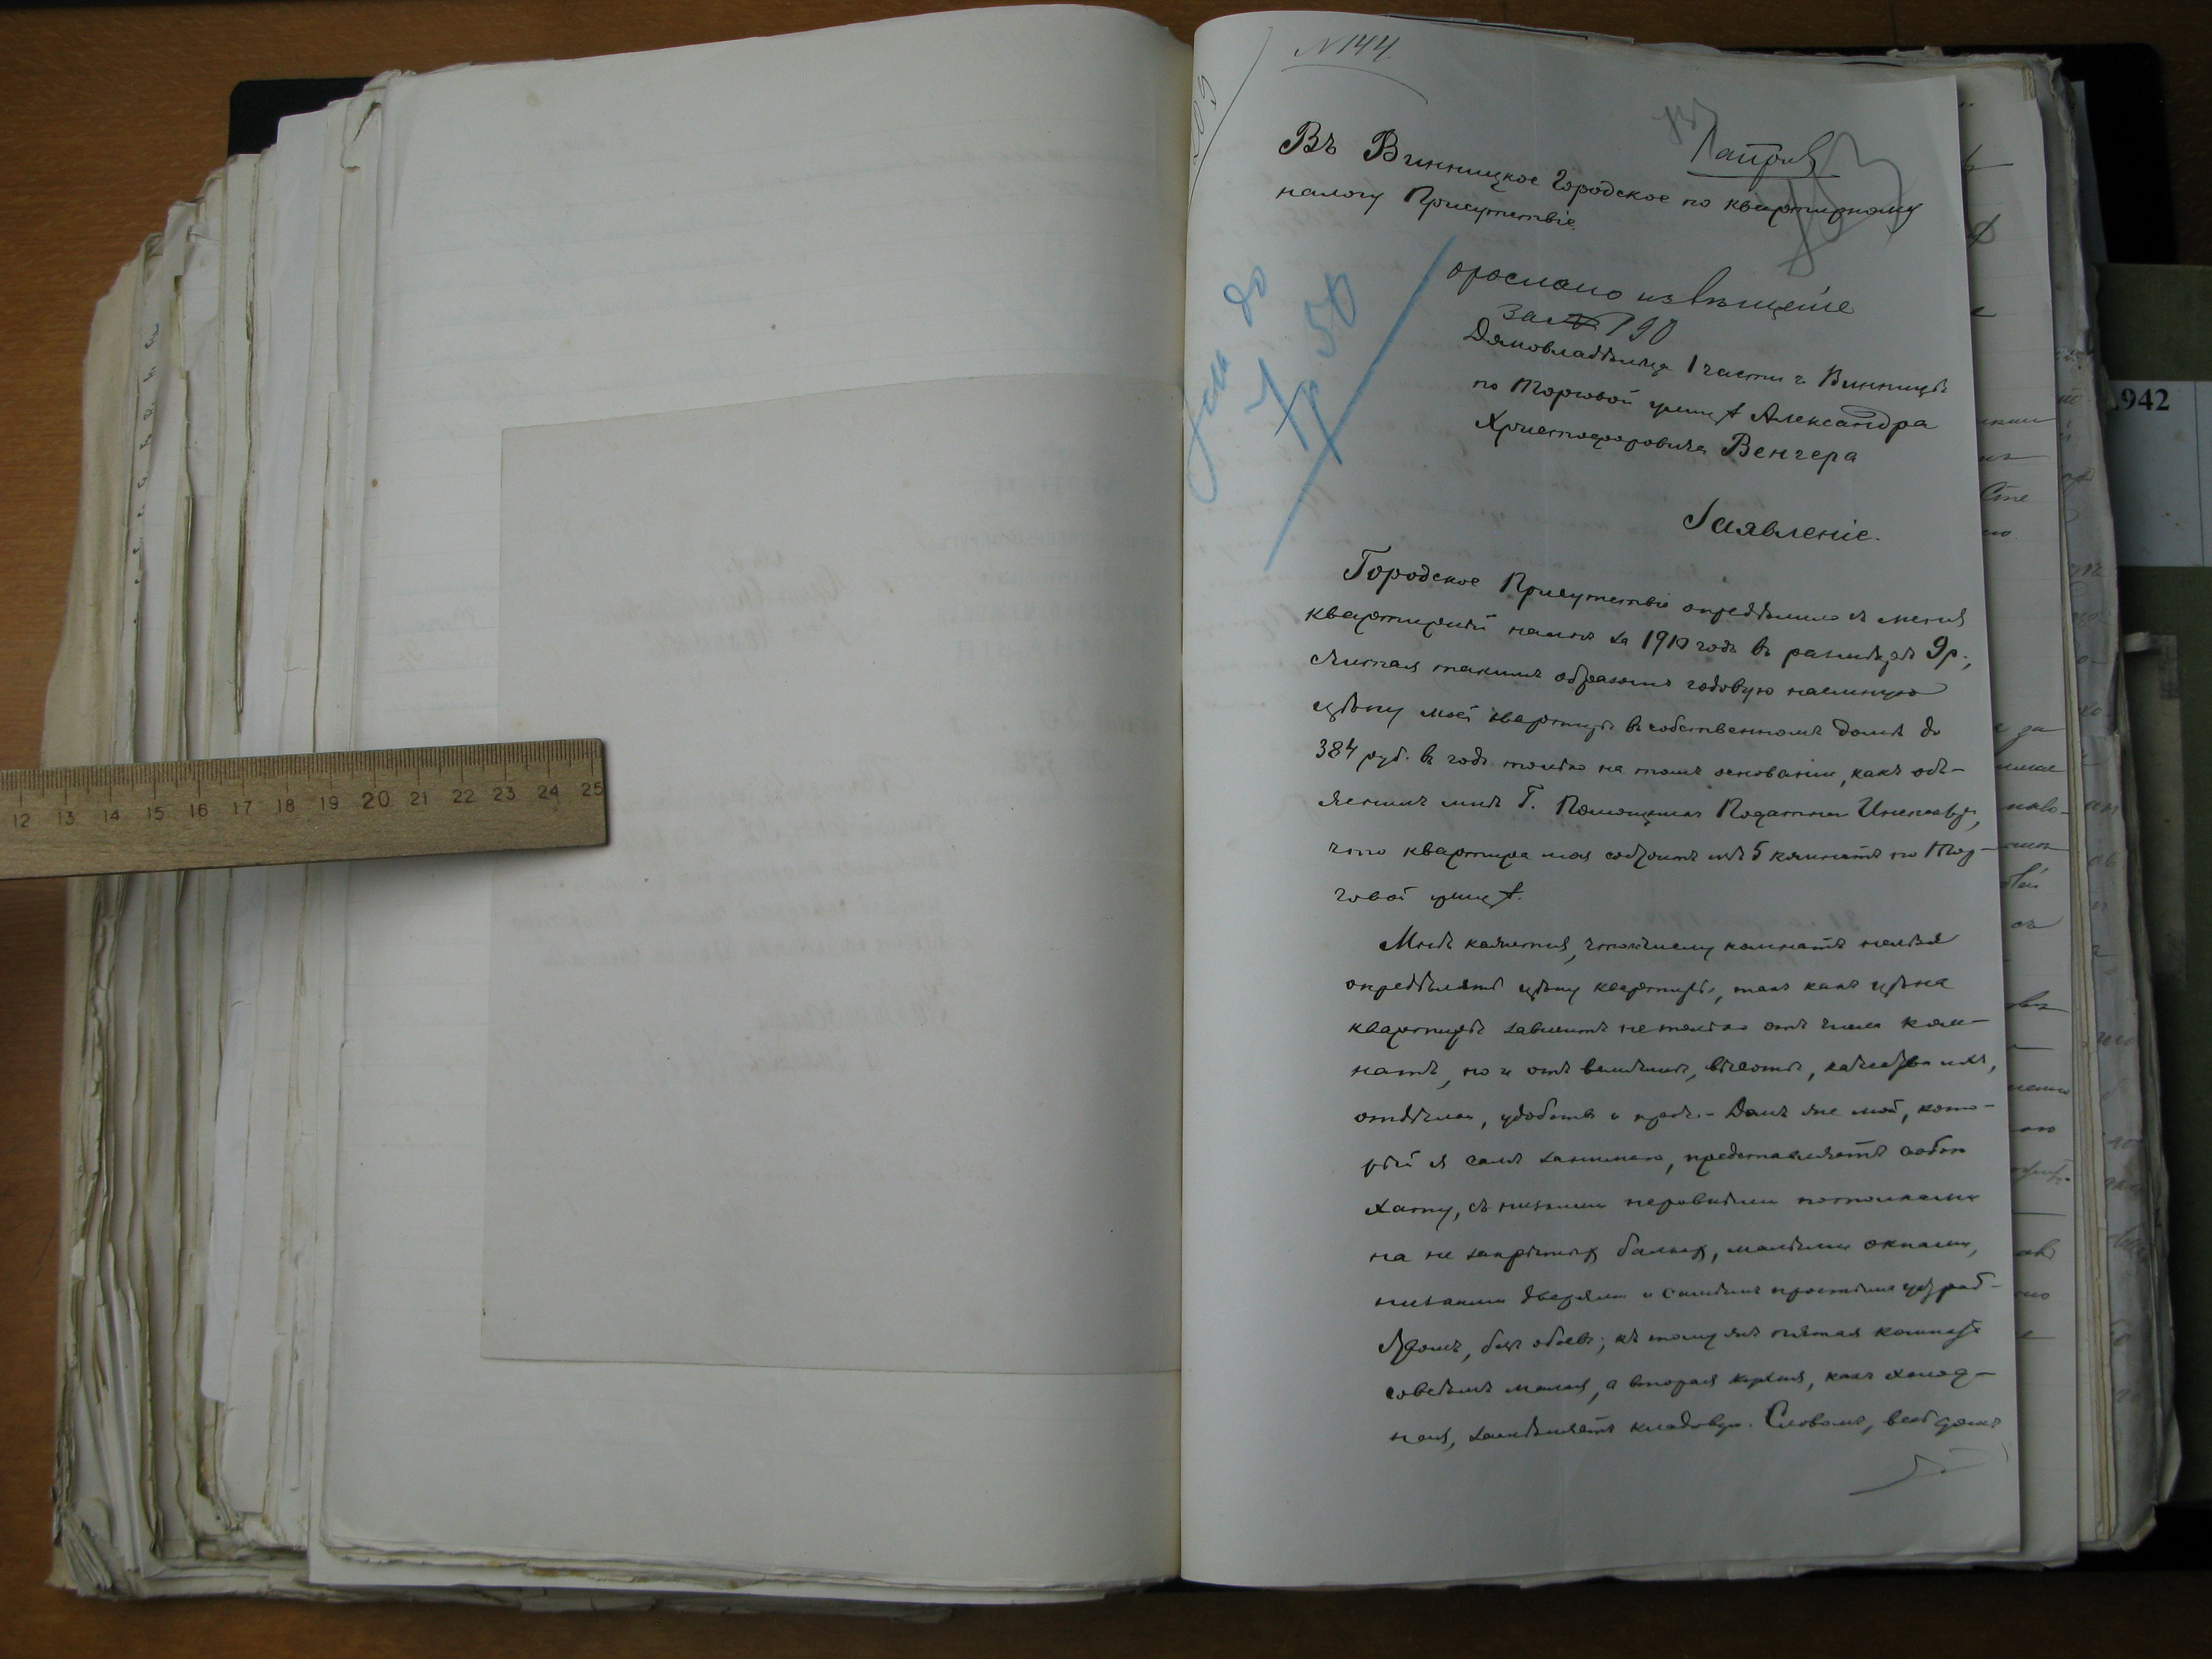 N 144
Въ Винницкое Городское по квартирному
налогу Присутствіе.
послано извѣщеніе
за № 190
Домовладѣльца 1 части г. Винницы
по Торговой улицѣ Александра
Христофоровича Венгера
7 р 50
Заявленіе.
Городское Присутствіе опредѣлило съ меня
квартирный налогъ за 1910 годъ въ размѣрѣ 9 р.,
считая такимъ образомъ годовую наемную
цѣну моей квартиры въ собственномъ домѣ до
384 руб. въ годъ только на томъ основаніи, какъ объ-
яснилъ мнѣ Г. Помощникъ Податн. Инспектора,
что квартира моя состоитъ изъ 5 комнатъ по Тор-
говой улицѣ.
Мнѣ кажется, что числу комнатъ нельзя
опредѣлять цѣну квартиры, такъ какъ цѣна
квартиры зависитъ не только отъ числа ком-
натъ, но и отъ величины, высоты, качества ихъ,
отдѣлки, удобствъ и проч. - Домъ же мой, кото-
рый я самъ занимаю, представляетъ собою
хату, съ низкими неровными потолками
на не закрытыхъ балкахъ, малыми окнами,
низкими дверями и самымъ простымъ
безъ обоевъ; къ тому же пятая комната
совсѣмъ малая, а вторая кухня, какъ холод-
ная, замѣняетъ кладовую. Словомъ, весь домъ
12 13 14 15 16 17 18 19 20 21 22 23 24 25
942